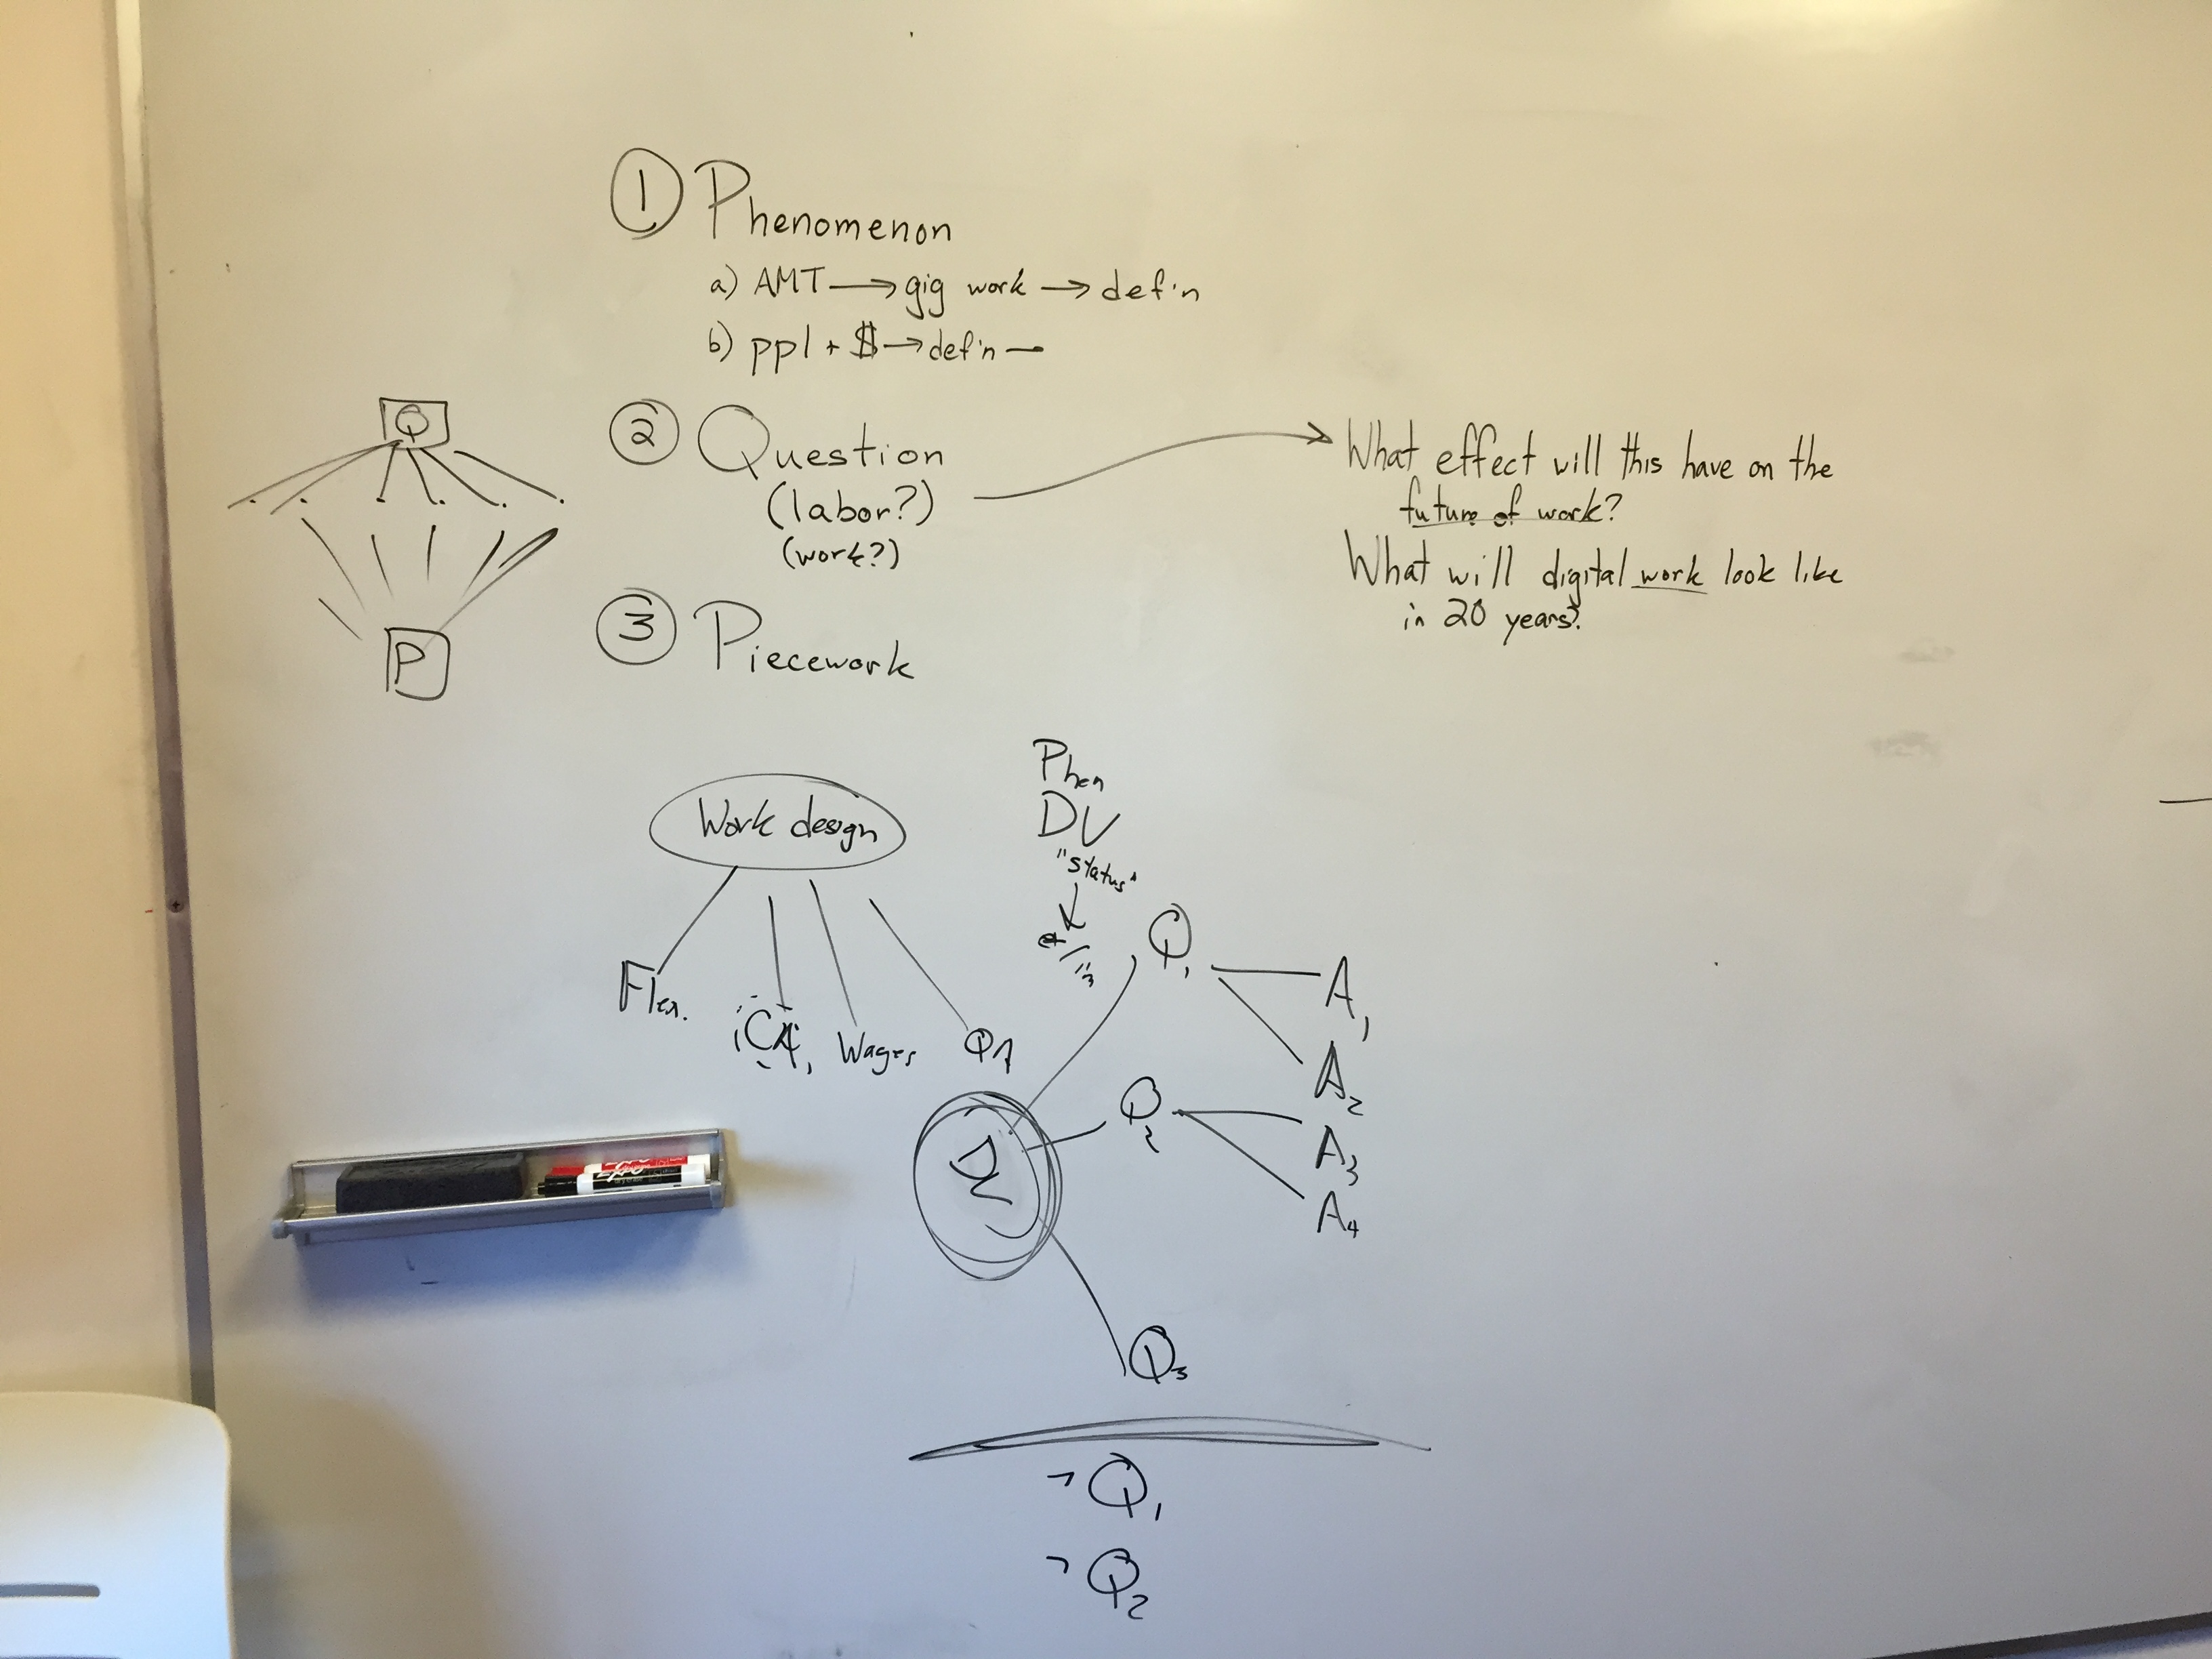 ① Phenomenon
a) AMT → gig work → def'n
b) ppl + $ → def'n –
Q
② Question
(labor?)
(work?)
What effect will this have on the
future of work?
What will digital work look like
in 20 years?
③ Piecework
P
Phen
DV
"status"
Work design
Flex.
Wages
Q1
A1
A2
Q2
A3
A4
DV
Q3
EXPO
¬ Q1
¬ Q2